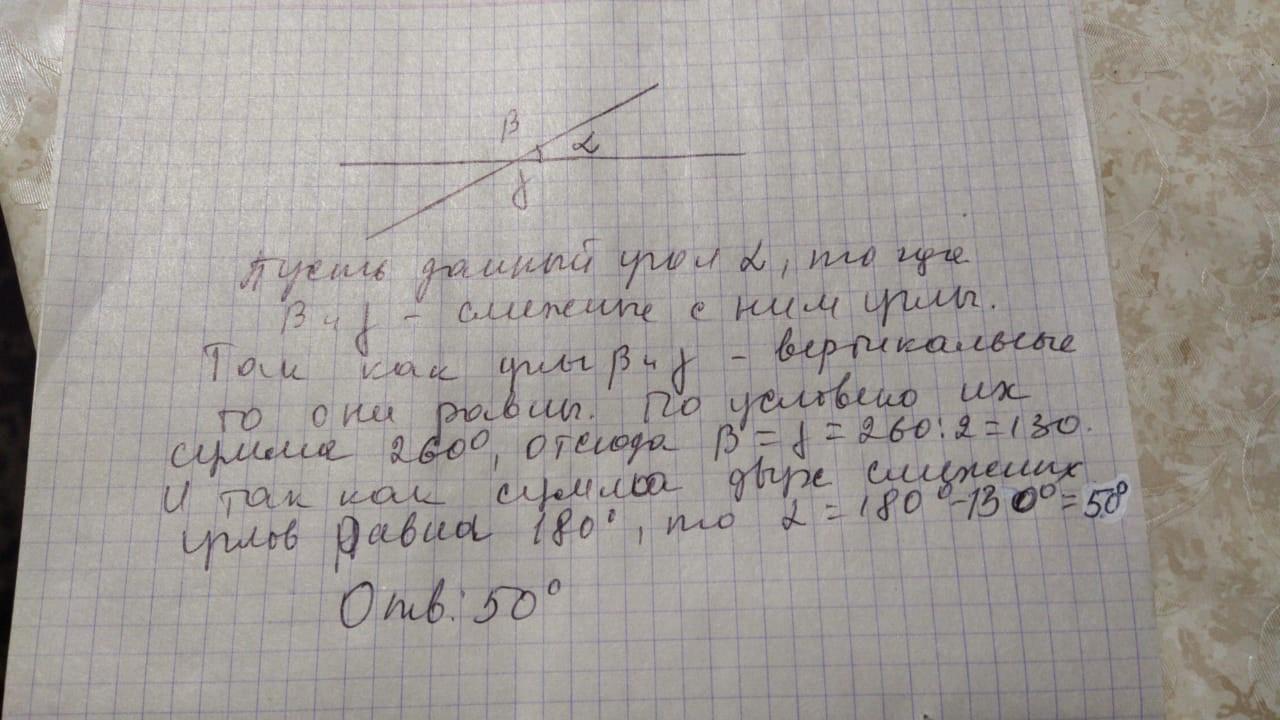 β
α
γ
Пусть данный угол α, то где
β и γ - смежные с ним углы.
Так как углы β и γ - вертикальные
то они равны. По условию их
сумма 260°, отсюда β = γ = 260:2=130.
И так как сумма двух смежных
углов равна 180°, то α = 180°-130°=50°
Отв: 50°